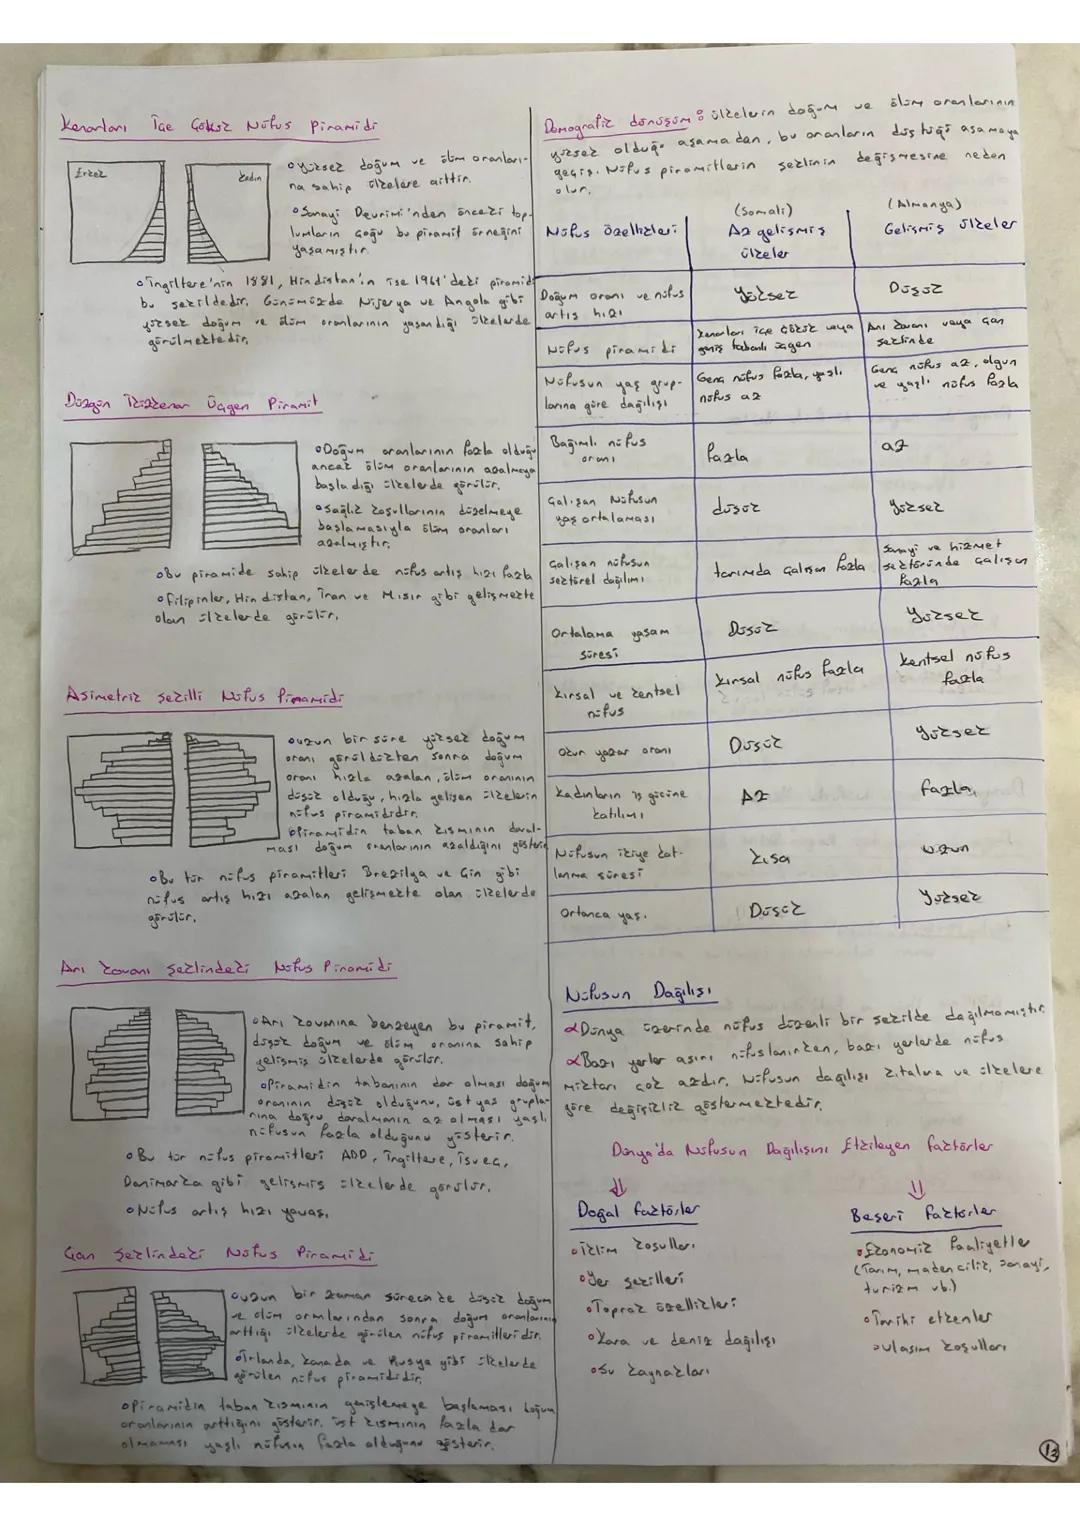 Kenarları İçe Çökük Nüfus Piramidi
Erkek
Kadın
• Yüksek doğum ve ölüm oranları-
na sahip ülkelere aittir.
• Sanayi Devrimi'nden önceki top-
lumların çoğu bu piramit örneğini
yaşamıştır.
• İngiltere'nin 1881, Hindistan'ın ise 1961'deki piramidi
bu şekildedir. Günümüzde Nijerya ve Angola gibi
yüksek doğum ve ölüm oranlarının yaşandığı ülkelerde
görülmektedir.
Düzgün İkizkenar Üçgen Piramit
• Doğum oranlarının fazla olduğu
ancak ölüm oranlarının azalmaya
başladığı ülkelerde görülür.
• Sağlık koşullarının düzelmeye
başlamasıyla ölüm oranları
azalmıştır.
• Bu piramide sahip ülkelerde nüfus artış hızı fazla
• Filipinler, Hindistan, İran ve Mısır gibi gelişmekte
olan ülkelerde görülür.
Asimetrik Şekilli Nüfus Piramidi
• uzun bir süre yüksek doğum
oranı görüldükten sonra doğum
oranı hızla azalan, ölüm oranının
düşük olduğu, hızla gelişen ülkelerin
nüfus piramididir.
• Piramidin taban kısmının daral-
ması doğum oranlarının azaldığını gösterir
• Bu tür nüfus piramitleri Brezilya ve Çin gibi
nüfus artış hızı azalan gelişmekte olan ülkelerde
görülür.
Arı Kovanı Şeklindeki Nüfus Piramidi
• Arı kovanına benzeyen bu piramit,
düşük doğum ve ölüm oranına sahip
gelişmiş ülkelerde görülür.
• Piramidin tabanının dar olması doğum
oranının düşük olduğunu, üst yaş grupla-
rına doğru daralmanın az olması yaşlı
nüfusun fazla olduğunu gösterir.
• Bu tür nüfus piramitleri ABD, İngiltere, İsveç,
Danimarka gibi gelişmiş ülkelerde görülür.
• Nüfus artış hızı yavaş.
Çan Şeklindeki Nüfus Piramidi
• uzun bir zaman sürecinde düşük doğum
ve ölüm oranlarından sonra doğum oranlarının
arttığı ülkelerde görülen nüfus piramitleridir.
• İrlanda, Kanada ve Rusya gibi ülkelerde
görülen nüfus piramididir.
• Piramidin taban kısmının genişlemeye başlaması doğum
oranlarının arttığını gösterir. Üst kısmının fazla dar
olmaması yaşlı nüfusun fazla olduğunu gösterir.
Demografik dönüşüm: ülkelerin doğum ve ölüm oranlarının
yüksek olduğu aşamadan, bu oranların düştüğü aşamaya
geçiş. Nüfus piramitlerin şeklinin değişmesine neden
olur.
(Somali) (Almanya)
Nüfus Özellikleri Az gelişmiş ülkeler Gelişmiş ülkeler
Doğum oranı ve nüfus artış hızı Yüksek Düşük
Nüfus piramidi Kenarları içe çökük veya geniş tabanlı üçgen Arı kovanı veya çan şeklinde
Nüfusun yaş grup- larına göre dağılışı Genç nüfus fazla, yaşlı nüfus az Genç nüfus az, olgun ve yaşlı nüfus fazla
Bağımlı nüfus oranı fazla az
Çalışan Nüfusun yaş ortalaması düşük yüksek
Çalışan nüfusun sektörel dağılımı tarımda çalışan fazla Sanayi ve hizmet sektöründe çalışan fazla
Ortalama yaşam süresi Düşük Yüksek
Kırsal ve kentsel nüfus Kırsal nüfus fazla Kentsel nüfus fazla
Okur yazar oranı Düşük Yüksek
Kadınların iş gücüne katılımı Az fazla
Nüfusun ikiye kat- lanma süresi Kısa uzun
Ortanca yaş. Düşük Yüksek
Nüfusun Dağılışı
∝ Dünya üzerinde nüfus düzenli bir şekilde dağılmamıştır
∝ Bazı yerler aşırı nüfuslanırken, bazı yerlerde nüfus
miktarı çok azdır. Nüfusun dağılışı kıtalara ve ülkelere
göre değişiklik göstermektedir.
Dünya'da Nüfusun Dağılışını Etkileyen faktörler
⇓ ⇓
Doğal faktörler
• iklim koşulları
• Yer şekilleri
• Toprak özellikleri
• Kara ve deniz dağılışı
• Su kaynakları
Beşeri faktörler
• Ekonomik faaliyetler
(Tarım, madencilik, sanayi,
turizm vb.)
• Tarihi etkenler
• ulaşım koşulları